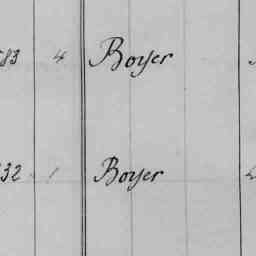 83 4 Boyer
32 1 Boyer